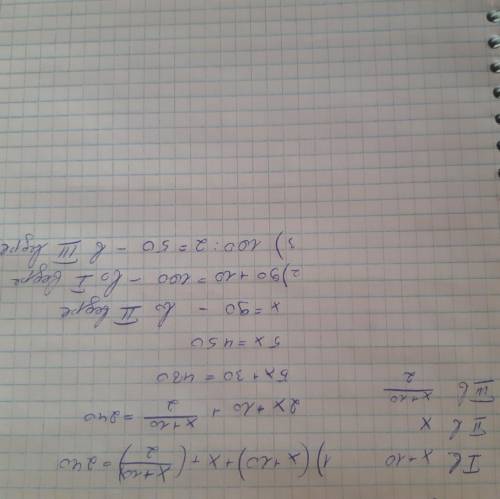 I в x+10 1) (x+10)+x+(x+10/2)=240
II в x
2x+10+x+10/2=240
III в x+10/2
5x+30=480
5x=450
x=90 - во II ведре
2) 90+10=100 - во I ведре
3) 100:2=50 - в III ведре